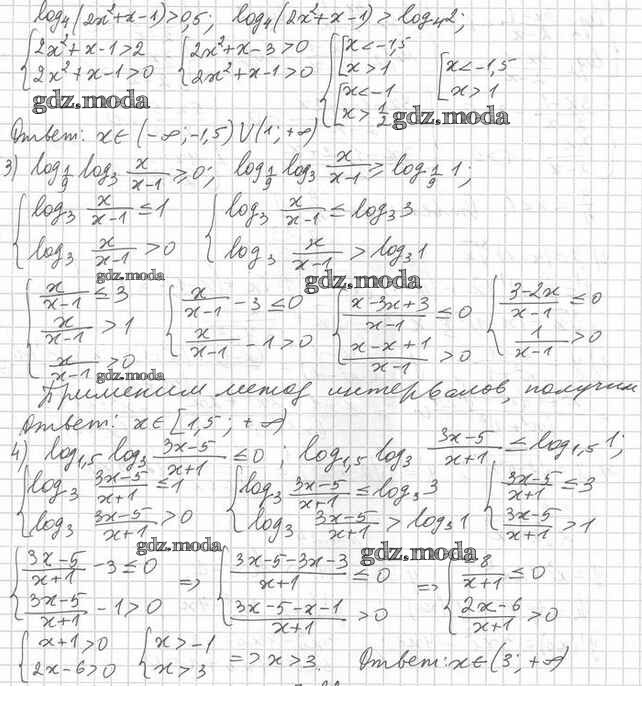 log₄(2x²+x-1)>0,5; log₄(2x²+x-1)>log₄2;
{2x²+x-1>2 {2x²+x-3>0 {[x<-1,5 [x<-1,5
{2x²+x-1>0 {2x²+x-1>0 {[x>1 [x>1
{[x<-1
{[x>1/2
gdz.moda gdz.moda
Ответ: x∈(-∞;-1,5)∪(1;+∞)
3) log_{1/9} log₃ x/(x-1) ≥0; log_{1/9} log₃ x/(x-1) ≥ log_{1/9} 1;
{log₃ x/(x-1) ≤1 {log₃ x/(x-1) ≤log₃3
{log₃ x/(x-1) >0 {log₃ x/(x-1) >log₃1
gdz.moda gdz.moda
{x/(x-1) ≤3 {x/(x-1) -3≤0 {(x-3x+3)/(x-1) ≤0 {(3-2x)/(x-1) ≤0
{x/(x-1) >1 {x/(x-1) -1>0 {(x-x+1)/(x-1) >0 {1/(x-1) >0
{x/(x-1) >0
gdz.moda
Применим метод интервалов, получим
Ответ: x∈[1,5; +∞)
4) log_{1,5} log₃ (3x-5)/(x+1) ≤0; log_{1,5} log₃ (3x-5)/(x+1) ≤log_{1,5} 1;
{log₃ (3x-5)/(x+1) ≤1 {log₃ (3x-5)/(x+1) ≤log₃3 {(3x-5)/(x+1) ≤3
{log₃ (3x-5)/(x+1) >0 {log₃ (3x-5)/(x+1) >log₃1 {(3x-5)/(x+1) >1
gdz.moda gdz.moda
{(3x-5)/(x+1) -3≤0 => {(3x-5-3x-3)/(x+1) ≤0 => {-8/(x+1) ≤0
{(3x-5)/(x+1) -1>0 {(3x-5-x-1)/(x+1) >0 {(2x-6)/(x+1) >0
{x+1>0 {x>-1 => x>3. Ответ: x∈(3; +∞)
{2x-6>0 {x>3